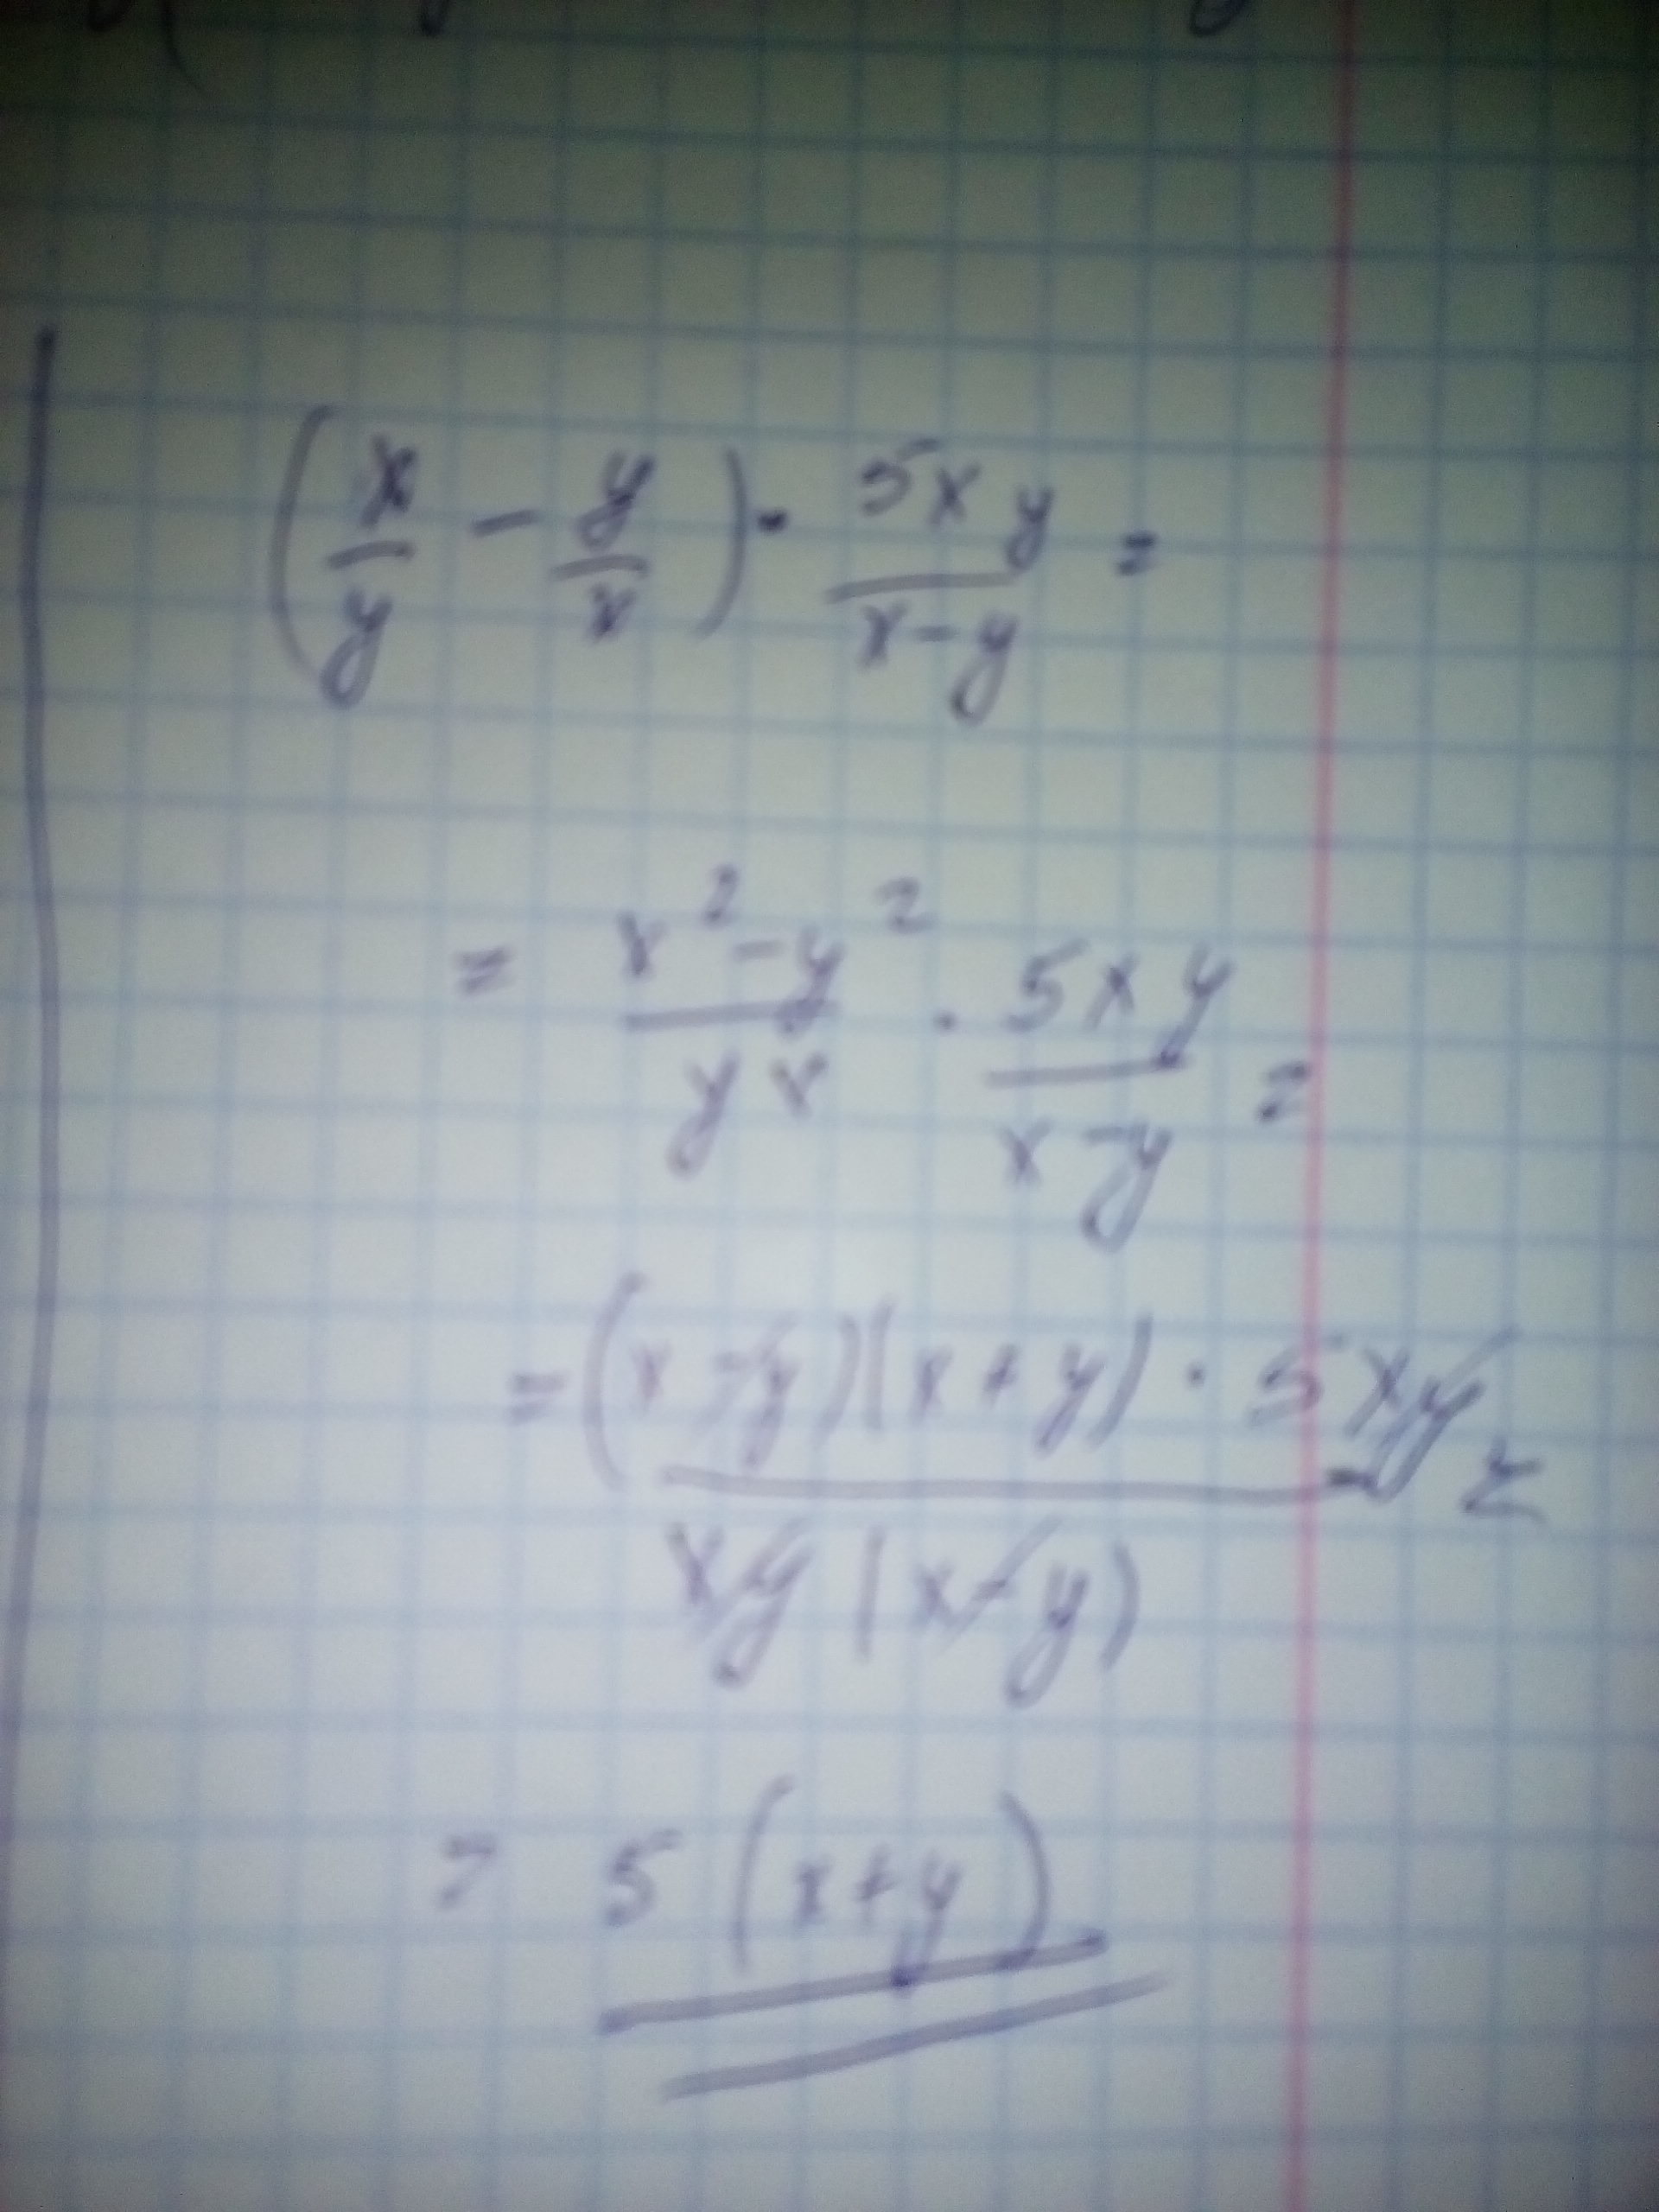 (x/y - y/x) · 5xy/(x-y) =
= (x² - y²)/(yx) · 5xy/(x-y) =
= (x-y)(x+y) · 5xy / xy(x-y) =
= 5(x+y)